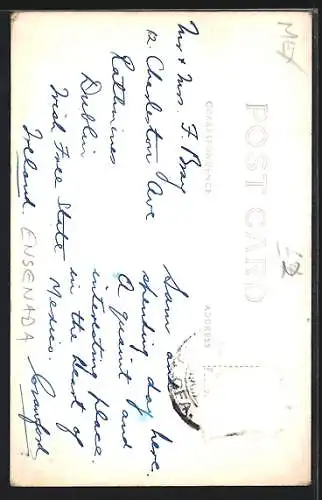 MEX
POST CARD
CORRESPONDENCE
ADDRESS
Mr & Mrs. F Bray
12. Charleston Ave
Rathmines
Dublin
Irish Free State
Ireland.
Sam and
spending day here.
A quaint and
interesting place.
in the Heart of
Mexico.
Crawford
ENSENADA